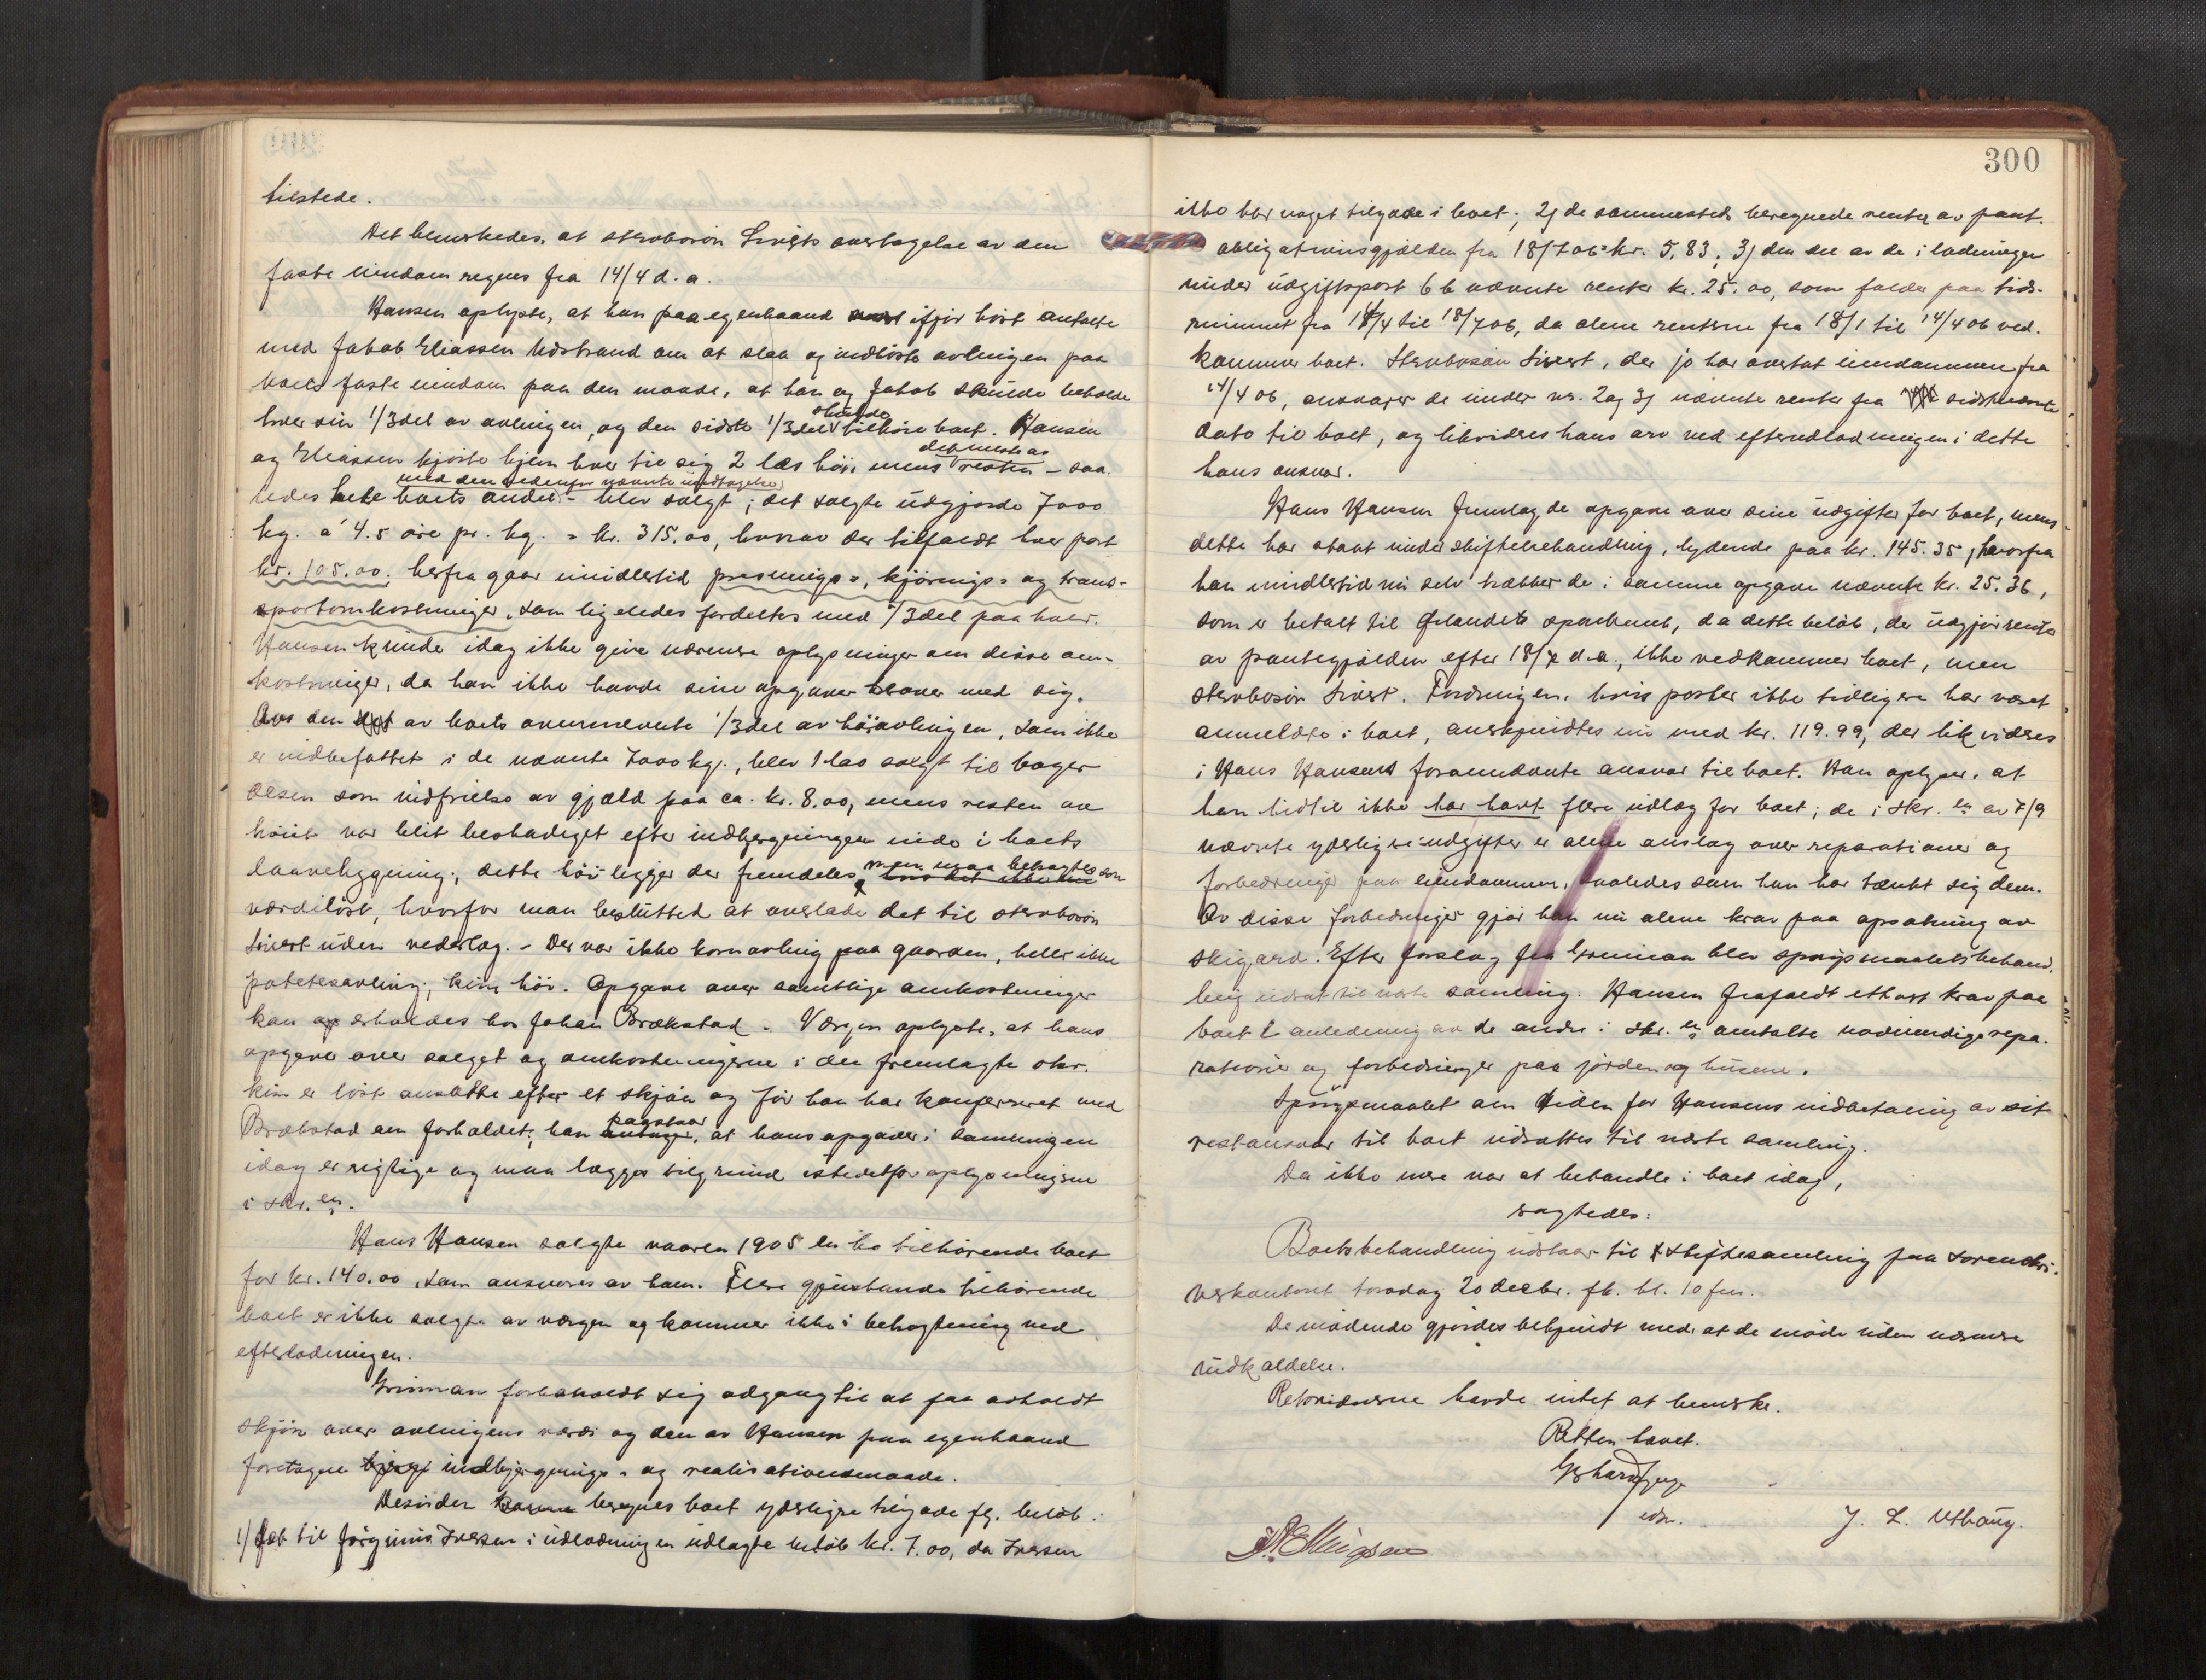 tilstede.
Det bemerkedes, at stervbosön Siverts overtagelse av den
faste eiendom regnes fra 14/4 d. a.
Hansen oplyste, at han paa egenhaand ifjor höst avtalte
med Jakob Eliassen Udstrand om at slaa og indhöste avlingen paa
boets faste eiendom paa den maade, at han og Jakob skulde beholde
hver sin 1/3 del av avlingen, og den sidste 1/3 del skulde tilhöre boet. Hansen
og Eliassen kjörte hjem hver til sig 2 læs höi, mens det meste av resten - saa-
ledes hele boets andel med den nedenfor nævnte undtagelse - blev solgt; det solgte udgjorde 7000
kg. a' 4.5 öre pr. kg. = kr. 315.00, hvorav der tilfaldt hver part
kr. 105.00; herfra gaar imidlertid presnings-, kjörings- og trans-
portomkostninger, som ligeledes fordeltes med 1/3 del paa hver.
Hansen kunde idag ikke give nærmere oplysninger om disse om-
kostninger, da han ikke havde sine opgaver herover med sig.
Av den av boets ovennævnte 1/3 del av höiavlingen, som ikke
er indbefattet i de nævnte 7000 kg., blev 1 læs solgt til bager
Olsen som indfrielse av gjæld paa ca. kr. 8.00, mens resten av
höiet var blit beskadiget efter indbjergningen inde i boets
laavebygning; dette höi ligger der fremdeles, men maa betragtes som
værdilöst, hvorfor man beslutted at overlade det til stervbosön
Sivert uden vederlag. - Der var ikke kornavling paa gaarden, heller ikke
potetesavling; kun höi. Opgave over samtlige omkostninger
kan erholdes hos Johan Brækstad. - Værgen oplyste, at hans
opgaver over salget og omkostningerne i den fremlagte skr.
kun er löst ansatte efter et skjön og för han har konfereret med
Brækstad om forholdet; han paastaar, at hans opgaver i samlingen
idag er rigtige og maa lægges tilgrund istedetfor oplysningerne
i skr.en.
Hans Hansen solgte vaaren 1905 en ko tilhörende boet
for kr. 140.00, som ansvares av ham. Flere gjenstande tilhörende
boet er ikke solgte av værgen og kommer ikke i betragtning ved
efterlodningen.
Grinman forbeholdt sig adgang til at faa avholdt
skjön over avlingens værdi og den av Hansen paa egenhaand
foretagne indbjergnings- og realisationsmaade.
Desuden beregnes boet yderligere tilgode flg. belöb:
1) Det til Jörginus Iversen i udlodningen udlagte belöb kr. 7.00, da Iversen
300
ikke har noget tilgode i boet; 2) de sammesteds beregnede renter av pant-
obligationsgjælden fra 18/7 06 = kr. 5,83; 3) den del av de i lodningen
under udgiftspost 6 b nævnte renter kr. 25.00, som falder paa tids-
rummet fra 14/4 til 18/7 06, da alene renterne fra 18/1 til 14/4 06 ved-
kommer boet. Stervbosön Sivert, der jo har overtat eiendommen fra
14/4 06, ansvarer de under nr. 2 og 3) nævnte renter fra sidstnævnte
dato til boet, og likvideres hans arv ved efterudlodningen i dette
hans ansvar.
Hans Hansen fremlagde opgave over sine udgifter for boet, mens
dette har staat under skiftebehandling, lydende paa kr. 145.35, hvorfra
han imidlertid nu selv trækker de i samme opgave nævnte kr. 25.36,
som er betalt til Ørlandets sparebank, da dette belöb, der udgjör renter
av pantegjælden efter 18/7 d.a., ikke vedkommer boet, men
stervbosön Sivert. Fordringen, hvis poster ikke tidligere har været
anmeldte i boet, anerkjendtes nu med kr. 119.99, der likvideres
i Hans Hansens forannævnte ansvar til boet. Han oplyser, at
han hidtil ikke har havt flere udlæg for boet; de i skr.en av 7/9
nævnte yderligere udgifter er alene anslag over reparationer og
forbedringer paa eiendommen, saaledes som han har tænkt sig dem.
Av disse forbedringer gjör han nu alene krav paa opsætning av
skigard. Efter forslag fra Grinman blev spörgsmaalets behand-
ling udsat til næste samling. Hansen frafaldt ethvert krav paa
boet i anledning av de andre i skr.en omtalte nödvendige repa-
rationer og forbedringer paa jorden og husene.
Spörgsmaalet om tiden for Hansens indbetaling av sit
restansvar til boet udsattes til næste samling.
Da ikke mere var at behandle i boet idag,
vagtedes:
Boets behandling udstaar til skiftesamling paa sorenskri-
verkontoret torsdag 20 decbr. fk. kl. 10 fm.
De mödende gjordes bekjendt med at de möde uden nærmere
indkaldelse.
Retsvidnerne havde intet at bemerke.
Retten hævet.
edsv.
J. L. Uthaug.